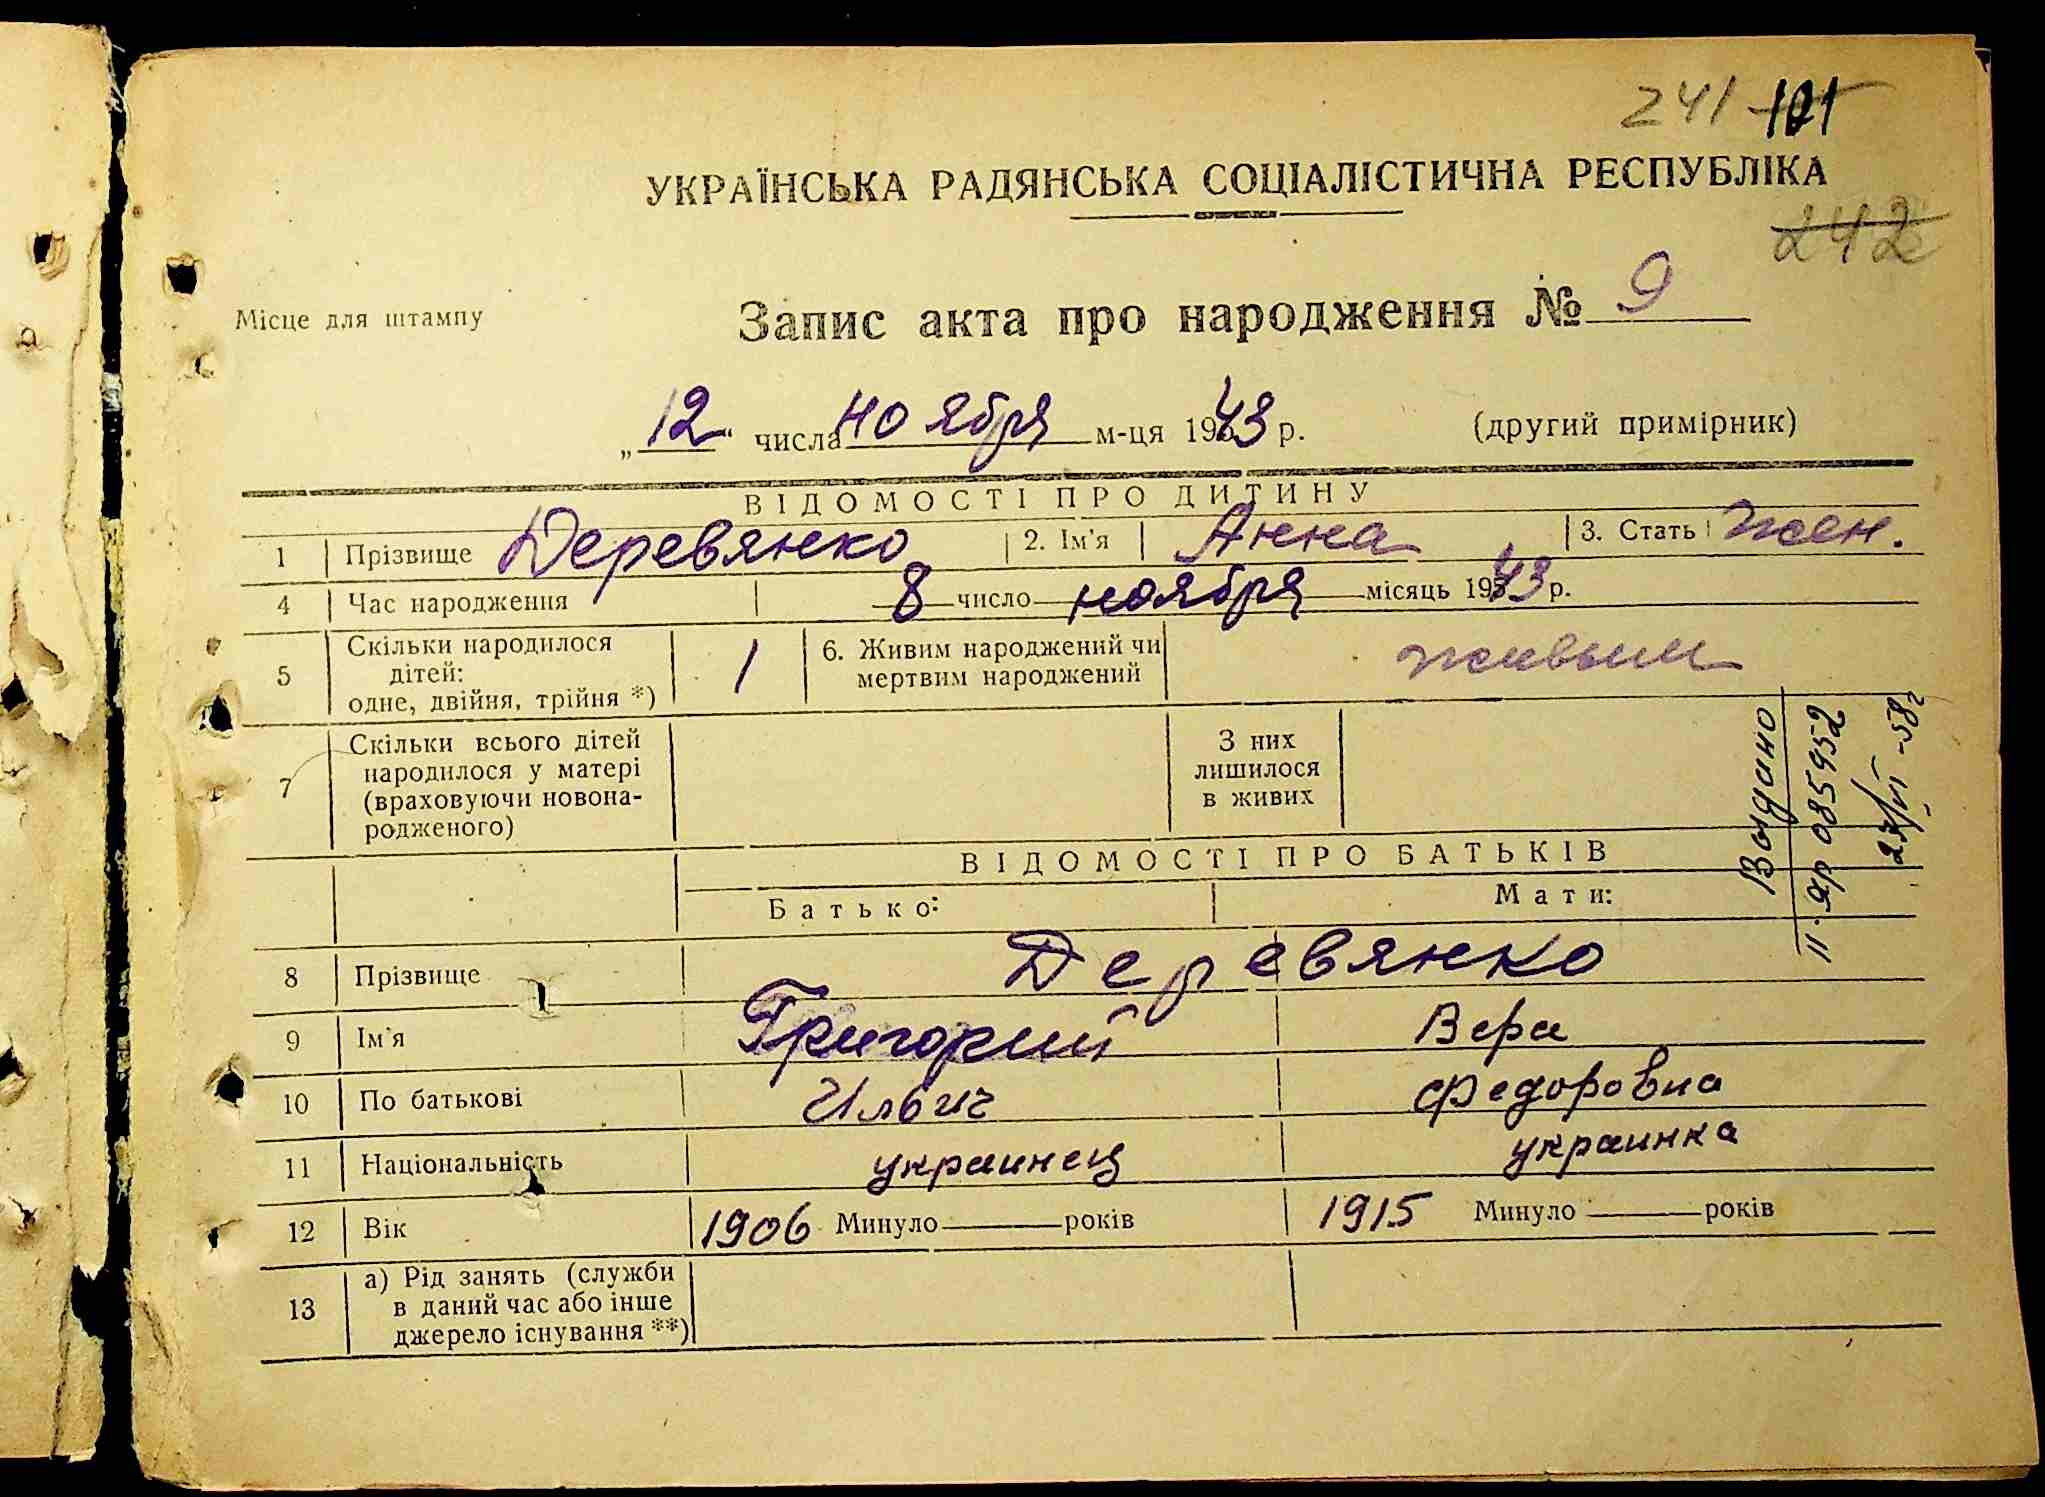 241 121
УКРАЇНСЬКА РАДЯНСЬКА СОЦІАЛІСТИЧНА РЕСПУБЛІКА
242
Місце для штампу
Запис акта про народження № 9
„12“ числа ноября м-ця 1943 р. (другий примірник)
ВІДОМОСТІ ПРО ДИТИНУ
1 Прізвище Деревянко 2. Ім'я Анна 3. Стать жен.
4 Час народження 8 число ноября місяць 1943 р.
5 Скільки народилося дітей: одне, двійня, трійня *) 1 6. Живим народжений чи мертвим народжений живым
7 Скільки всього дітей народилося у матері (враховуючи новонародженого) З них лишилося в живих
Выдано
II-яр 0859452
-58г
ВІДОМОСТІ ПРО БАТЬКІВ
Батько: Мати:
8 Прізвище Деревянко
9 Ім'я Григорий Вера
10 По батькові Ильич Федоровна
11 Національність украинец украинка
12 Вік 1906 Минуло років 1915 Минуло років
13 а) Рід занять (служби в даний час або інше джерело існування **)